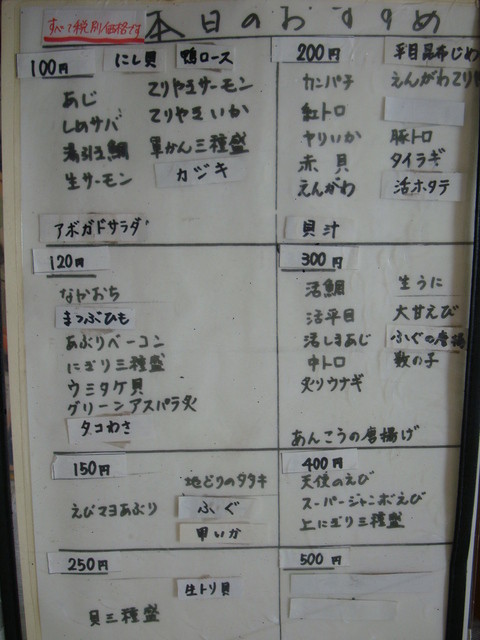 すべて税別価格です
本日のおすすめ
100円
にし貝
鴨ロース
あじ
てりやきサーモン
しめサバ
てりやきいか
湯引き鯛
軍かん三種盛
生サーモン
カジキ
アボガドサラダ
200円
平目昆布じめ
カンパチ
えんがわてり
紅トロ
ヤリいか
豚トロ
赤貝
タイラギ
えんがわ
活ホタテ
貝汁
120円
なかおち
まつぶひも
あぶりベーコン
にぎり三種盛
ウミタケ貝
グリーンアスパラ炙
タコわさ
300円
活鯛
生うに
活平目
大甘えび
活しまあじ
ふぐの唐揚
中トロ
数の子
炙りウナギ
あんこうの唐揚げ
150円
地どりのタタキ
えびマヨあぶり
ふぐ
甲いか
400円
天使のえび
スーパージャンボえび
上にぎり三種盛
250円
生トリ貝
貝三種盛
500円